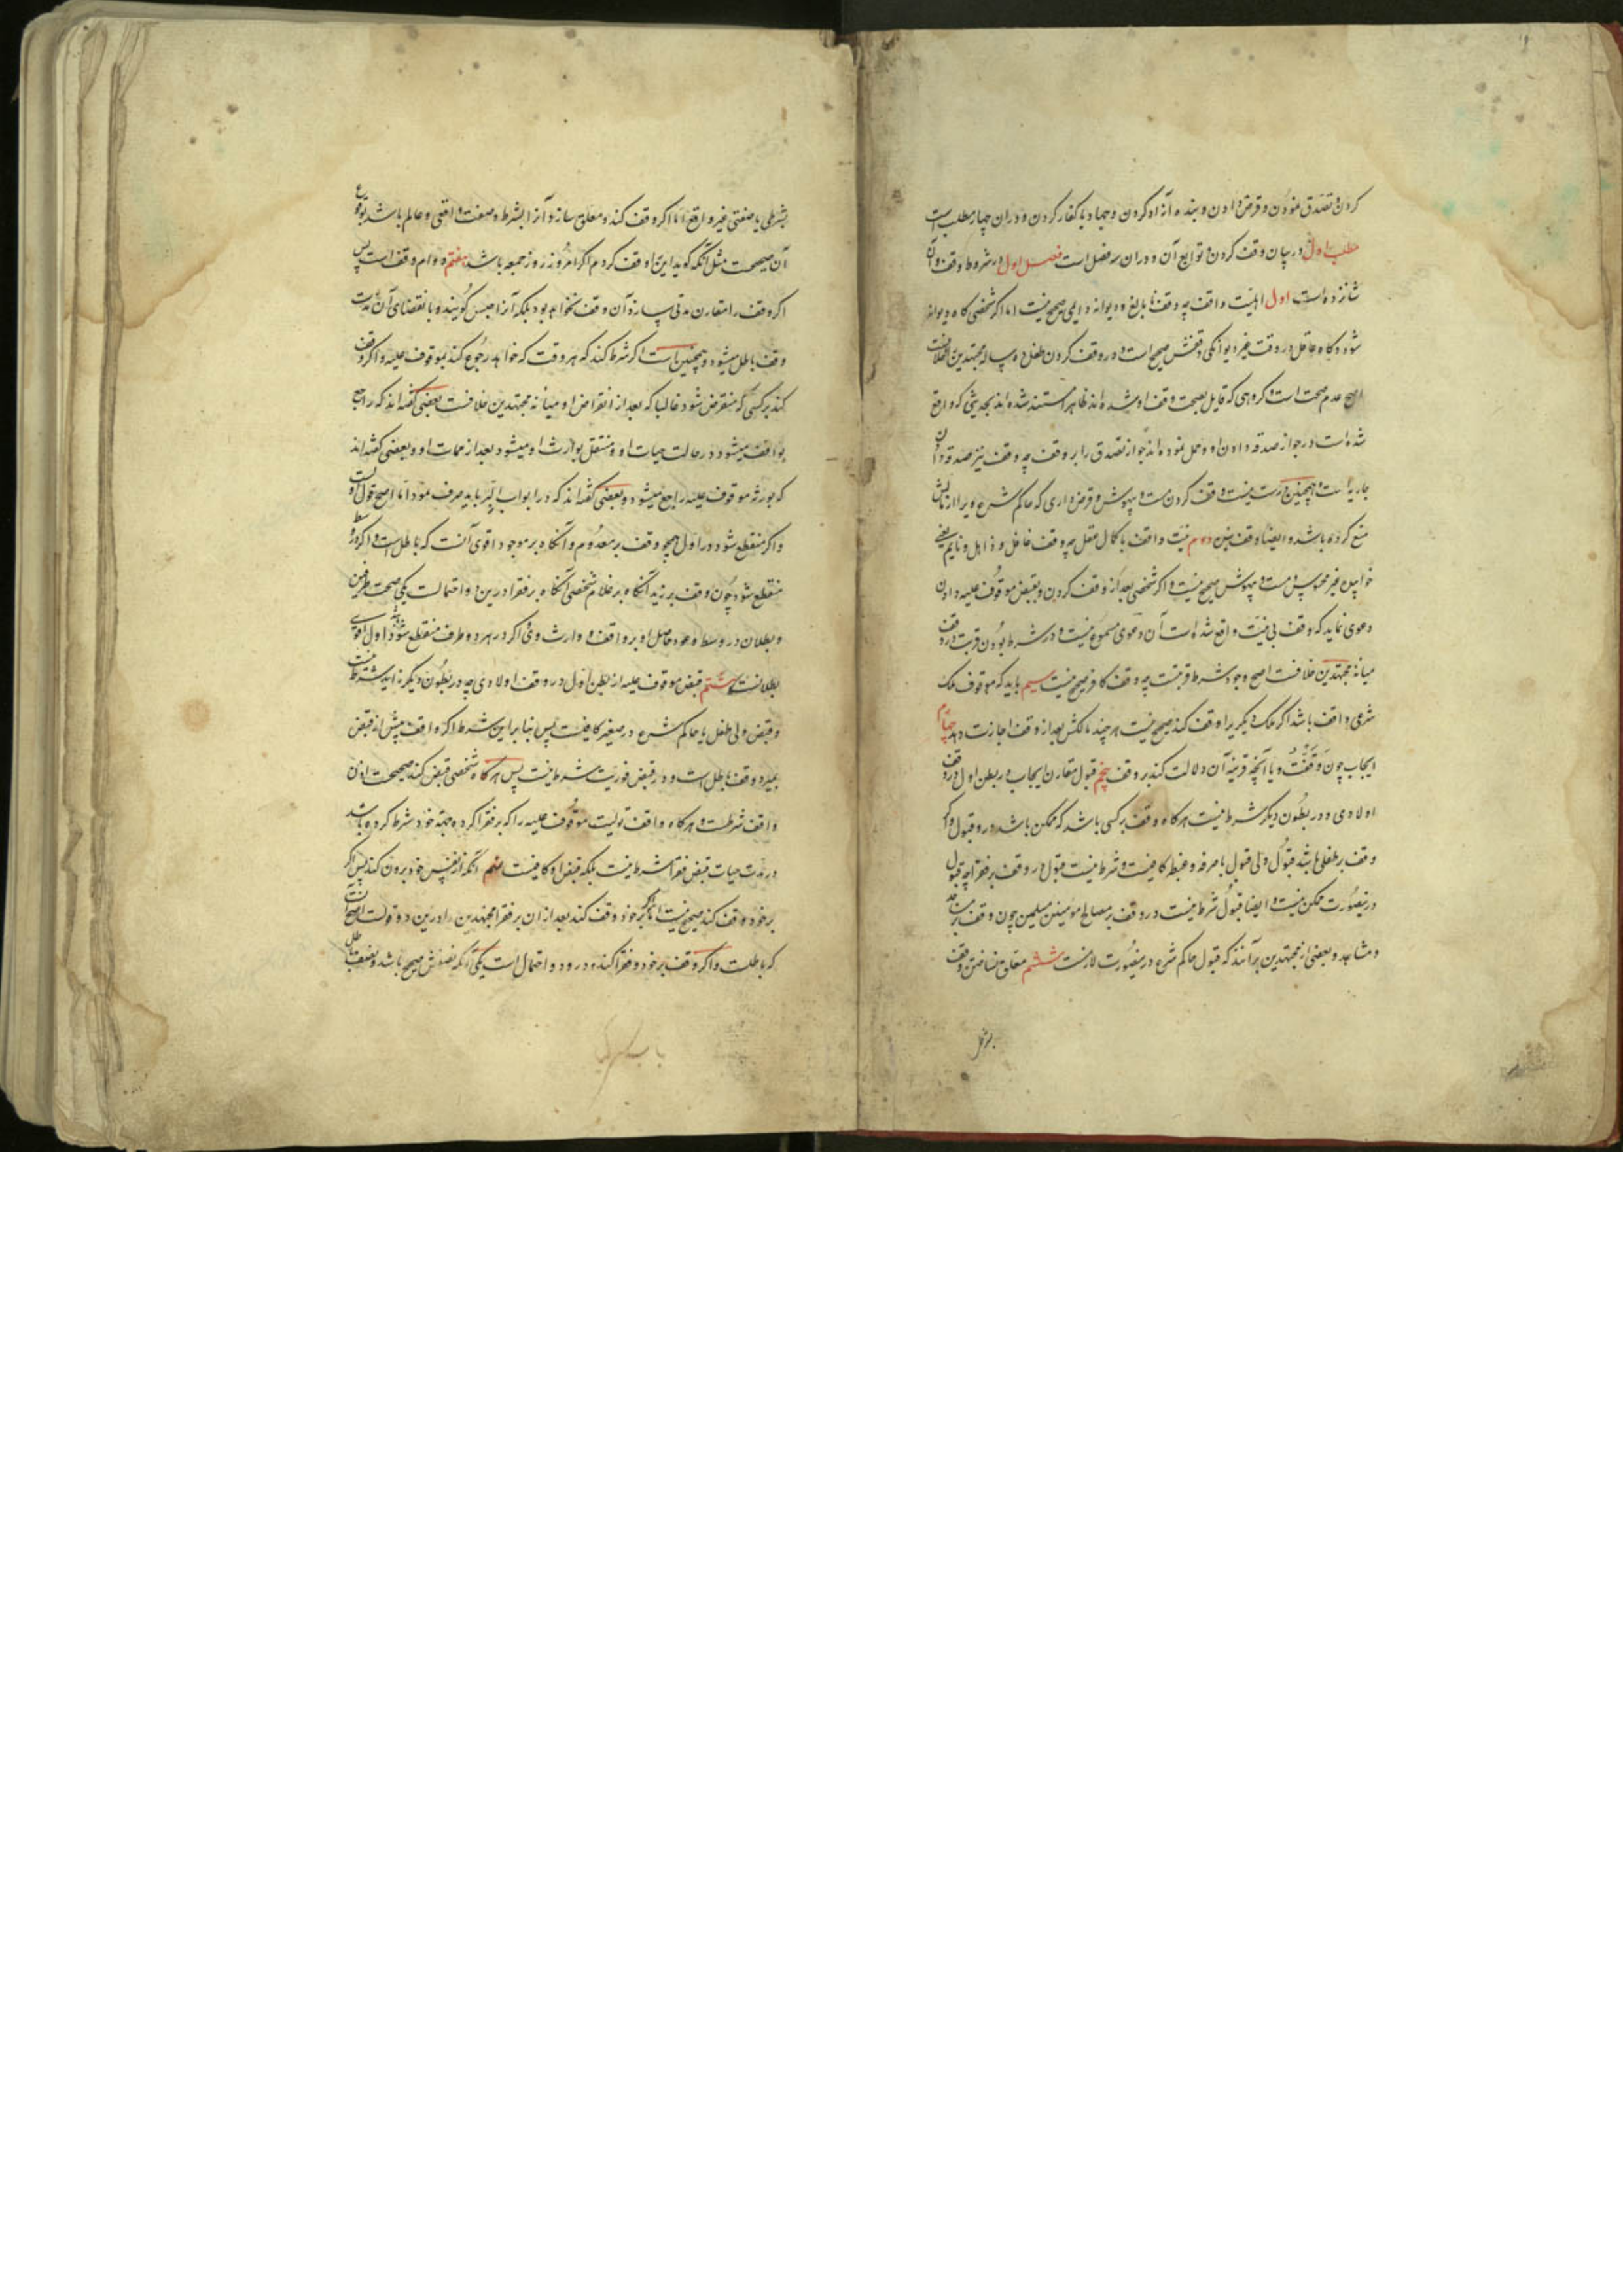 کردن و تصدق نمودن و قرض دادن و بنده آزاد کردن و جهاد با کفار کردن و در ان چهار مطلب است
مطلب اول در بیان وقف کردن و توابع آن و در ان سه فصل است فصل اول در شروط وقف و آن
شانزده است اول اهلیت واقف چه وقف نابالغ و دیوانه دایمی صحیح نیست اما اگر شخصی گاه دیوانه
شود و گاه عاقل در وقت غیر دیوانگی وقفش صحیح است و در وقف کردن طفل ده ساله مجتهدین خلافست
اصح عدم صحت است و گروهی که قایل بصحت وقف او شده اند ظاهرا مستند شده اند بحدیثی که واقع
شده است در جواز صدقه دادن او و حمل نموده اند جواز تصدق را بر وقف چه وقف نیز صدقه
جاریه است و همچنین درست نیست وقف کردن مست و بیهوش و قرض داری که حاکم شرع ویرا از مالش
منع کرده باشد و ایضا وقف دوم نیت واقف با کمال عقل چه وقف غافل و ذاهل و نایم یعنی
خوابیده و غیر و مست و بیهوش صحیح نیست و اگر شخصی بعد از وقف کردن و بقبض موقوف علیه دادن
دعوی نماید که وقف بی نیت واقع شده است آن دعوی مسموع نیست و در شرط بودن قربت در وقف
میانه مجتهدین خلافست اصح وجود شرط قربتست چه وقف کافر صحیح نیست سیم باید که موقوف ملک
شرعی واقف باشد اگر ملک دیگریرا وقف کند صحیح نیست هر چند مالکش بعد از وقف اجازت دهد چهارم
ایجاب چون وقفت و یا آنچه قرینه آن دلالت کند بر وقف پنجم قبول مقارن ایجاب در بطن اول در وقف
اولادی و در بطون دیگر شرط نیست هر گاه وقف بر کسی باشد که ممکن باشد در و قبول و اگر
وقف بر طفلی باشد قبول ولی با صرفه و غبطه کافیست و شرط نیست قبول در وقف بر فقرا چه قبول
درینصورت ممکن نیست و ایضا قبول شرط نیست در وقف بر مصالح مؤمنین مسلمین چون وقف بر مساجد
و مشاهد و بعضی از مجتهدین برآنند که قبول حاکم شرع درینصورت لازمست ششم معلق نساختن وقف
بشرطی یا صفتی غیر واقع اما اگر وقف کند و معلق سازد آنرا بشرط و صفت واقعی و عالم باشد بوقوع
آن صحیحست مثل آنکه گوید این را وقف کردم اگر امروز روز جمعه باشد هفتم دوام وقف است پس
اگر وقف را مقارن مدتی سازد آن وقف نخواهد بود بلکه آنرا حبس گویند و بانقضای آن مدت
وقف باطل میشود و همچنین است اگر شرط کند که هر وقت که خواهد رجوع کند بموقوف علیه و اگر وقف
کند بر کسی که منقرض شود غالبا که بعد از انقراض او میانه مجتهدین خلافست بعضی گفته اند که راجع
بواقف میشود در حالت حیات او و منتقل بوارث او میشود بعد از ممات او و بعضی گفته اند
که بورثه موقوف علیه راجع میشود و بعضی گفته اند که در ابواب البر باید صرف نمود اما اصح قول اولست
و اگر منقطع شود در اول همچو وقف بر معدوم و آنگاه بر موجود اقوی آنست که باطل است و اگر در وسط
منقطع شود چون وقف بر زید آنگاه بر غلام شخصی آنگاه بر فقرا درین دو احتمالست یکی صحت طرفین
و بطلان در وسط و عود حاصل او بر واقف و وارث وی و اگر در هر دو طرف منقطع شود اول اقوی
بطلانست هشتم قبض موقوف علیه از بطن اول در وقف اولادی چه در بطون دیگر زاید شرط نیست
و قبض ولی طفل یا حاکم شرع در صغیر کافیست پس بنا براین شرط اگر واقف پیش از قبض
بمیرد وقف باطل است و در قبض فوریت شرط نیست پس هر گاه شخصی قبض کند صحیحست اذن
واقف شرطست و هر گاه واقف تولیت موقوف علیه را که بر فقرا کرده بجهة خود شرط کرده باشد
در مدت حیات قبض فقرا شرط نیست بلکه قبض او کافیست نهم آنکه از نفس خود برون کند پس اگر
بر خود وقف کند صحیح نیست اما اگر بر خود وقف کند بعد از ان بر فقرا مجتهدین را درین دو قولست اصح آنست
که باطلست و اگر وقف بر خود و فقرا کند درو دو احتمال است یکی آنکه نصفش صحیح باشد و نصف باطل
بشرطی